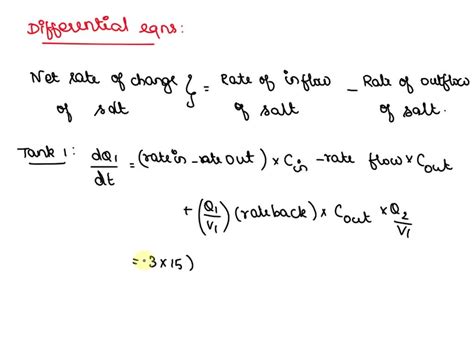 Differential eqns:
Net rate of change } = Rate of inflow - Rate of outflow
of salt of salt of salt.
Tank 1: dQ1/dt = (rate in - rate out) × Cin - rate flow × Cout
+ (Q1/V1) (rate back) × Cout × Q2/V1
= 3 × 15)